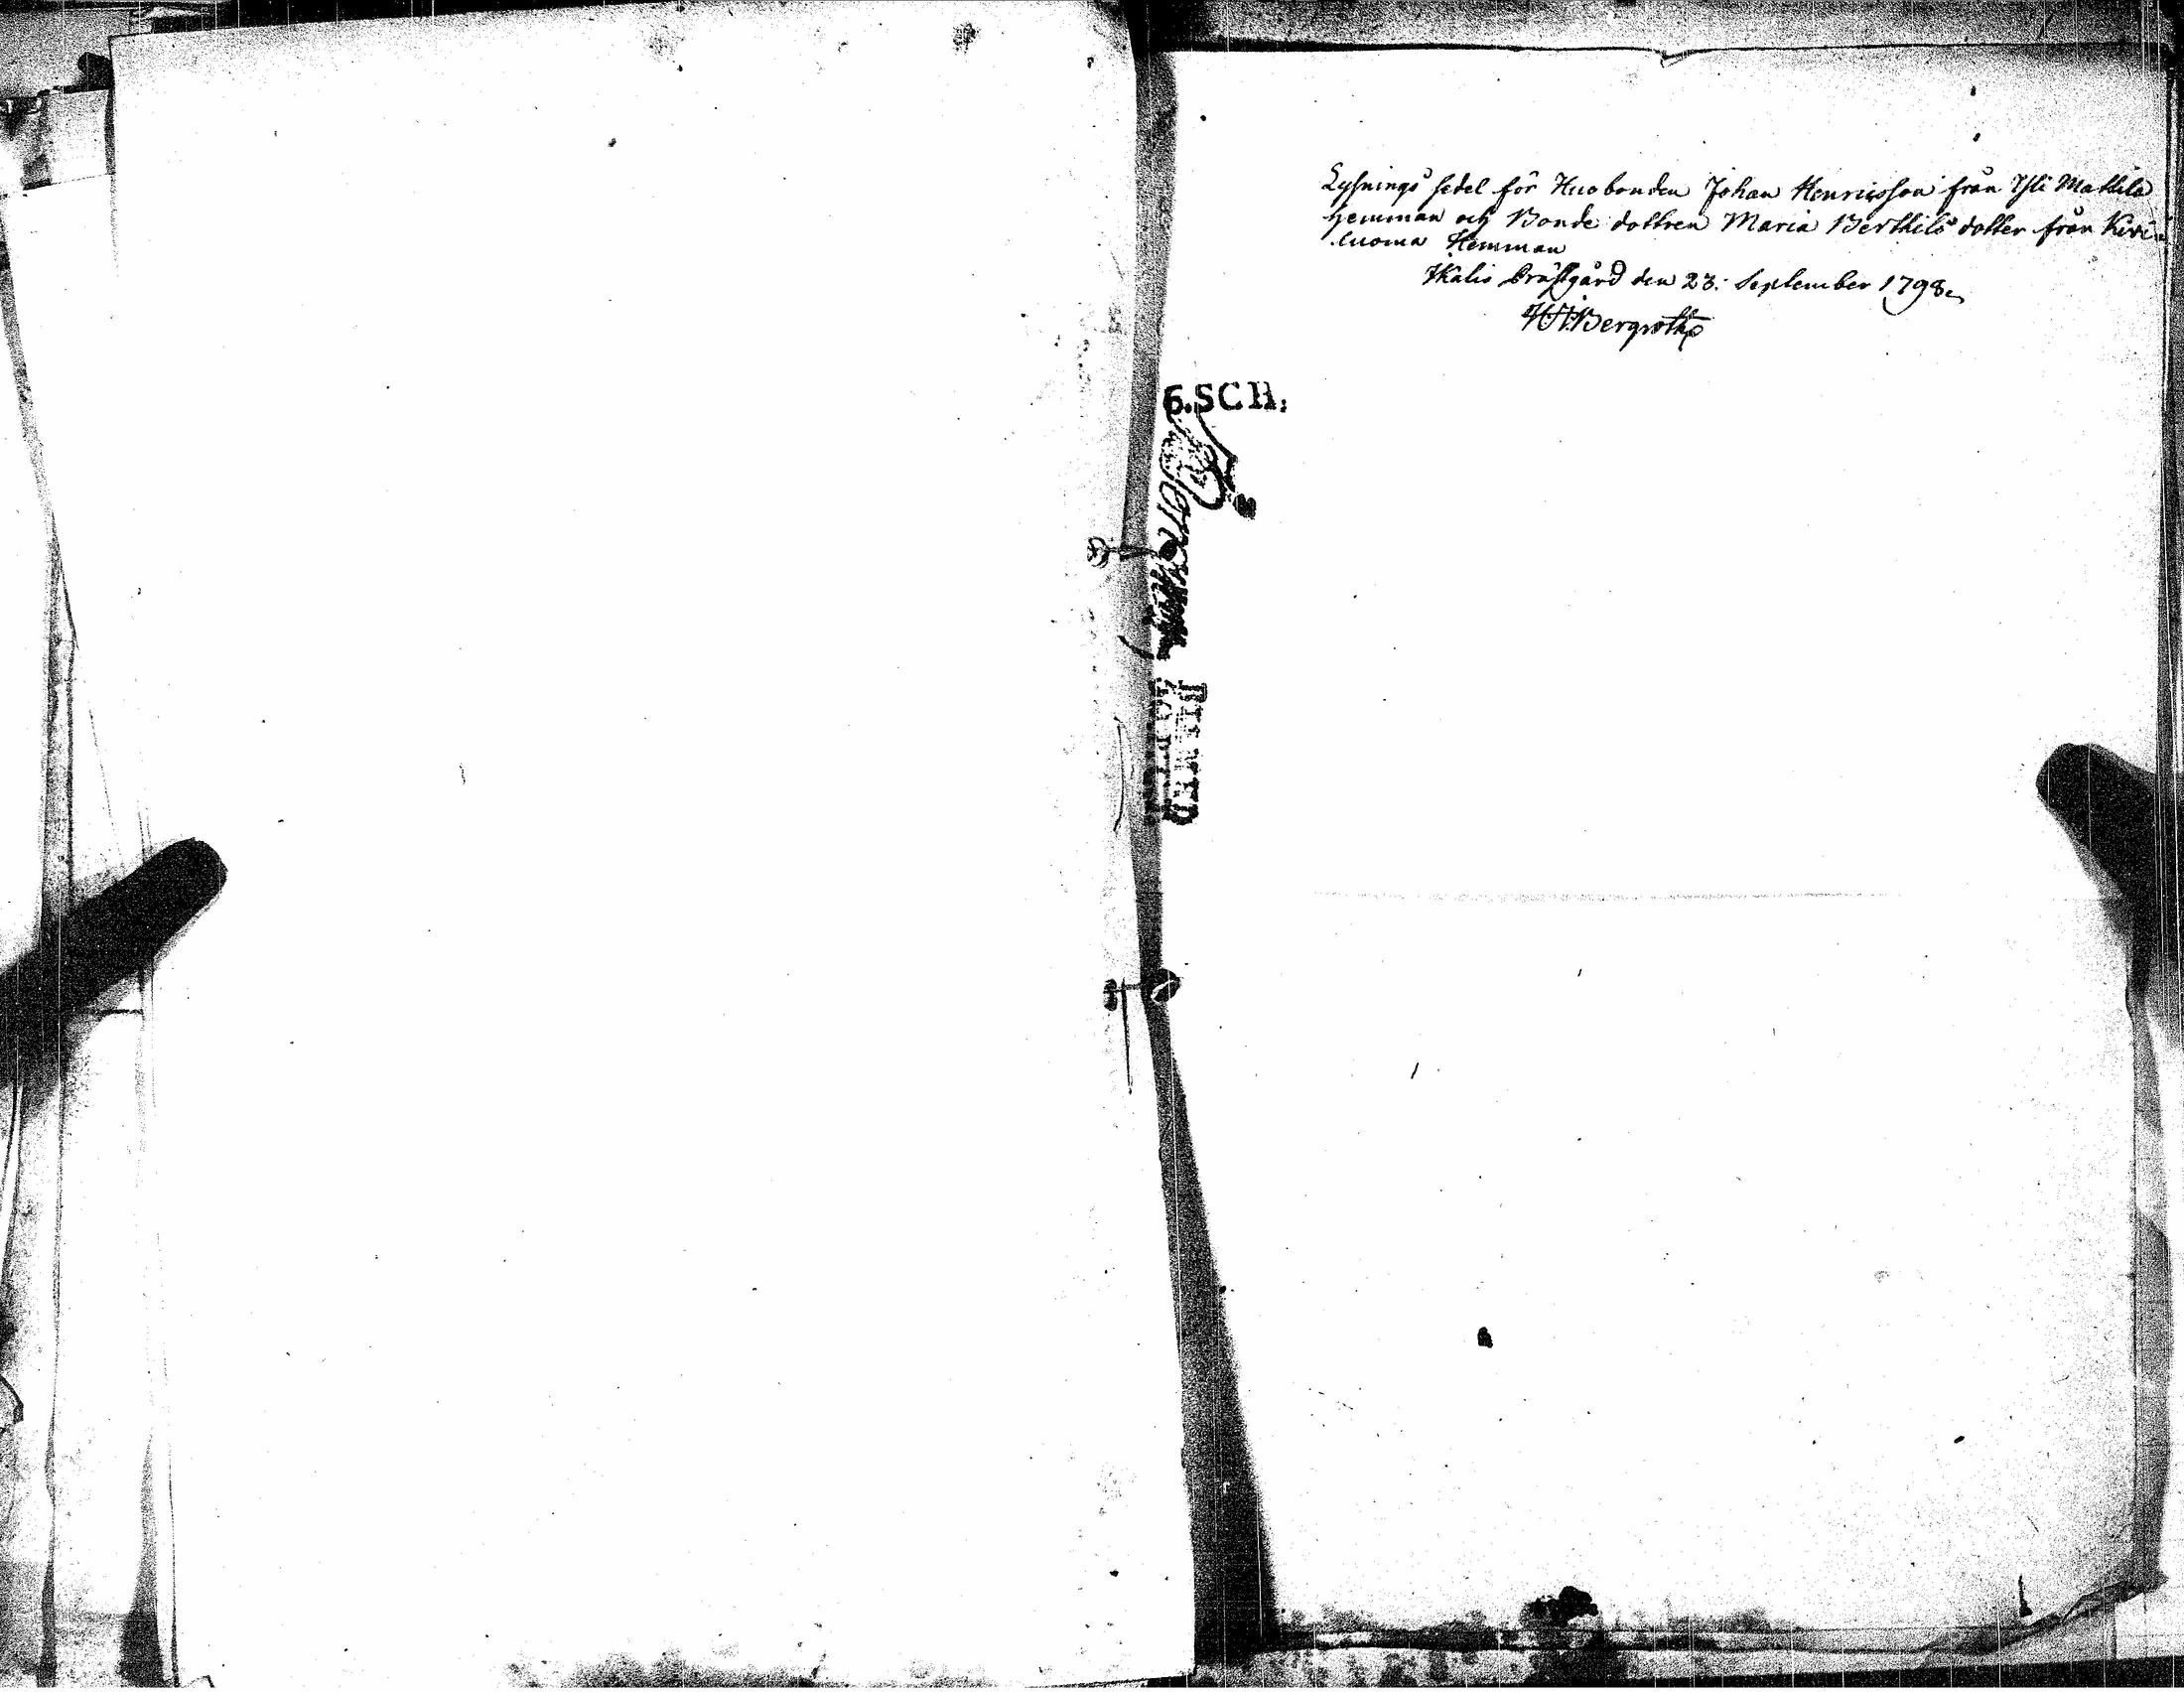 Lysnings sedel för Husbonden Johan Henricsson från Yli Mathila
hemman och Bonde dottren Maria Berthils dotter från Kivi-
luoma Hemman
Ikalis Prästgård den 23: September 1798.
Bergroth
6.SCH.